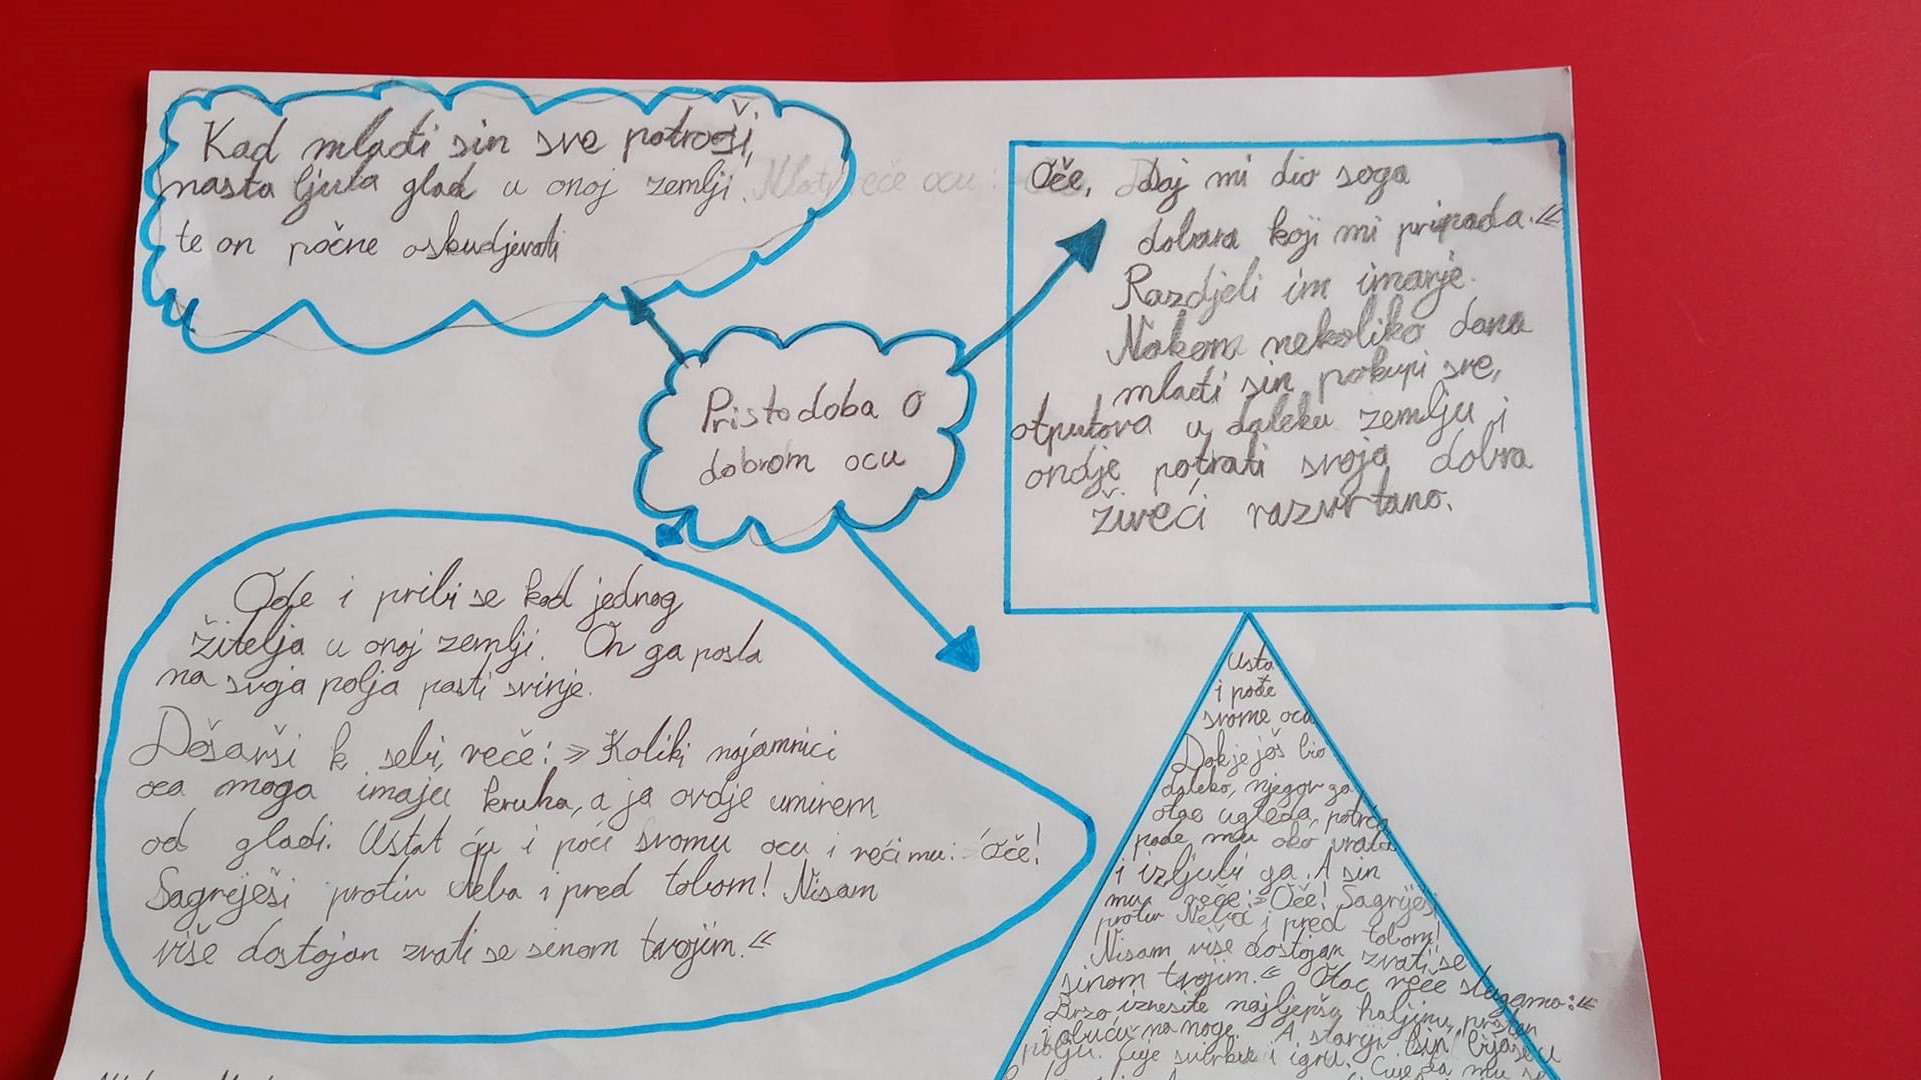 Kad mlađi sin sve potroši,
nasta ljuta glad u onoj zemlji.
te on počne oskudjevati
Oče, Daj mi dio soga
dobara koji mi pripada.«
Razdjeli im imanje.
Nakon nekoliko dana
mlađi sin pokupi sve,
otputova u daleku zemlju i
ondje potrati svoja dobra
živeći razvrtano.
Pristodoba O
dobrom ocu
Ode i pribi se kod jednog
žitelja u onoj zemlji. On ga posla
na svoja polja pasti svinje.
Došavši k sebi, reče: »Koliki najamnici
oca moga imaju kruha, a ja ovdje umirem
od gladi. Ustat ću i poći svomu ocu i reći mu: Oče!
Sagriješi protiv Neba i pred tobom! Nisam
više dostojan zvati se sinom tvojim.«
Usta
i pođe
svome ocu
Dok je još bio
daleko, njegov ga
otac ugleda, potrča
pade mu oko vrata
i izljubi ga. A sin
mu reče: »Oče! Sagriješi
protiv Neba i pred tobom!
Nisam više dostojan zvati se
sinom tvojim.« Otac reče slugama:«
Brzo iznesite najljepšu haljinu, prsten
i obuću na noge. A stariji sin bijaše u
polju. Čuje svirku i igru.